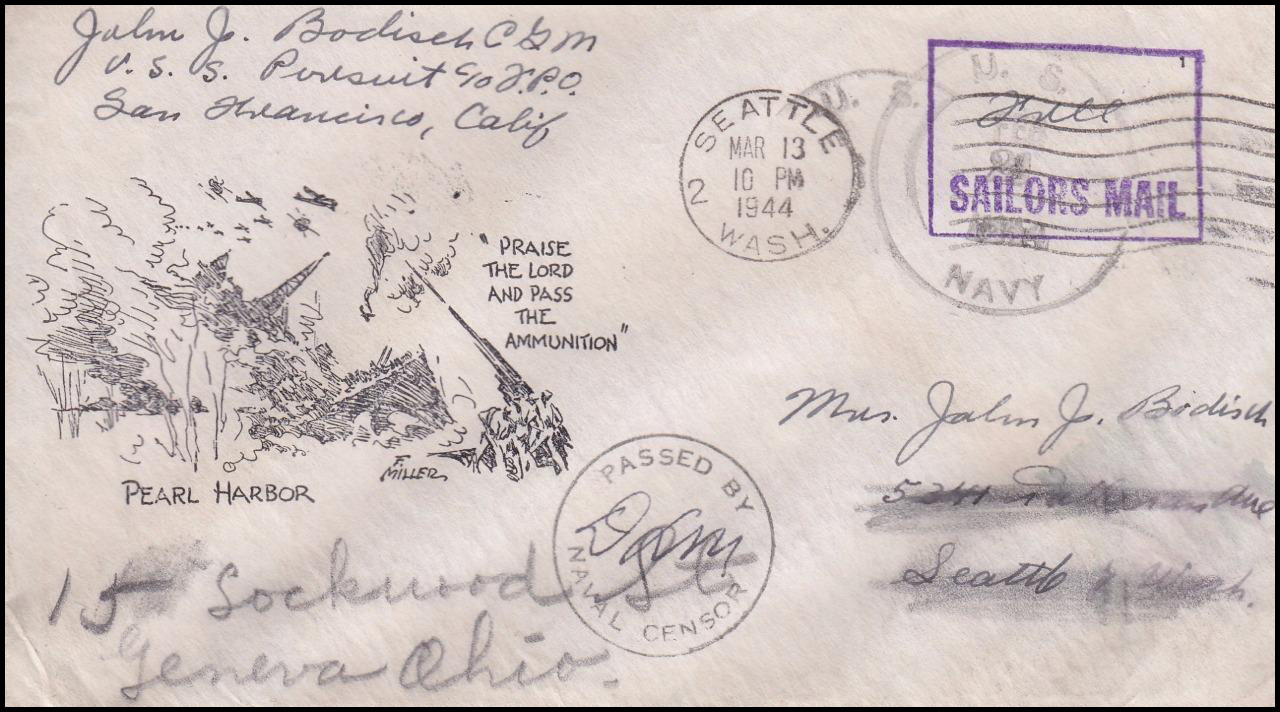 John J. Bodisch C G M
U. S. S. Pursuit c/o F.P.O.
San Francisco, Calif
SEATTLE
2
MAR 13
10 PM
1944
WASH.
U. S.
U. S.
NAVY
1
Free
SAILORS MAIL
"PRAISE
THE LORD
AND PASS
THE
AMMUNITION"
F. MILLER
PEARL HARBOR
PASSED BY
NAVAL CENSOR
Mrs. John J. Bodisch
Ave
Seattle Wash.
15 Lockwood St
Geneva Ohio.